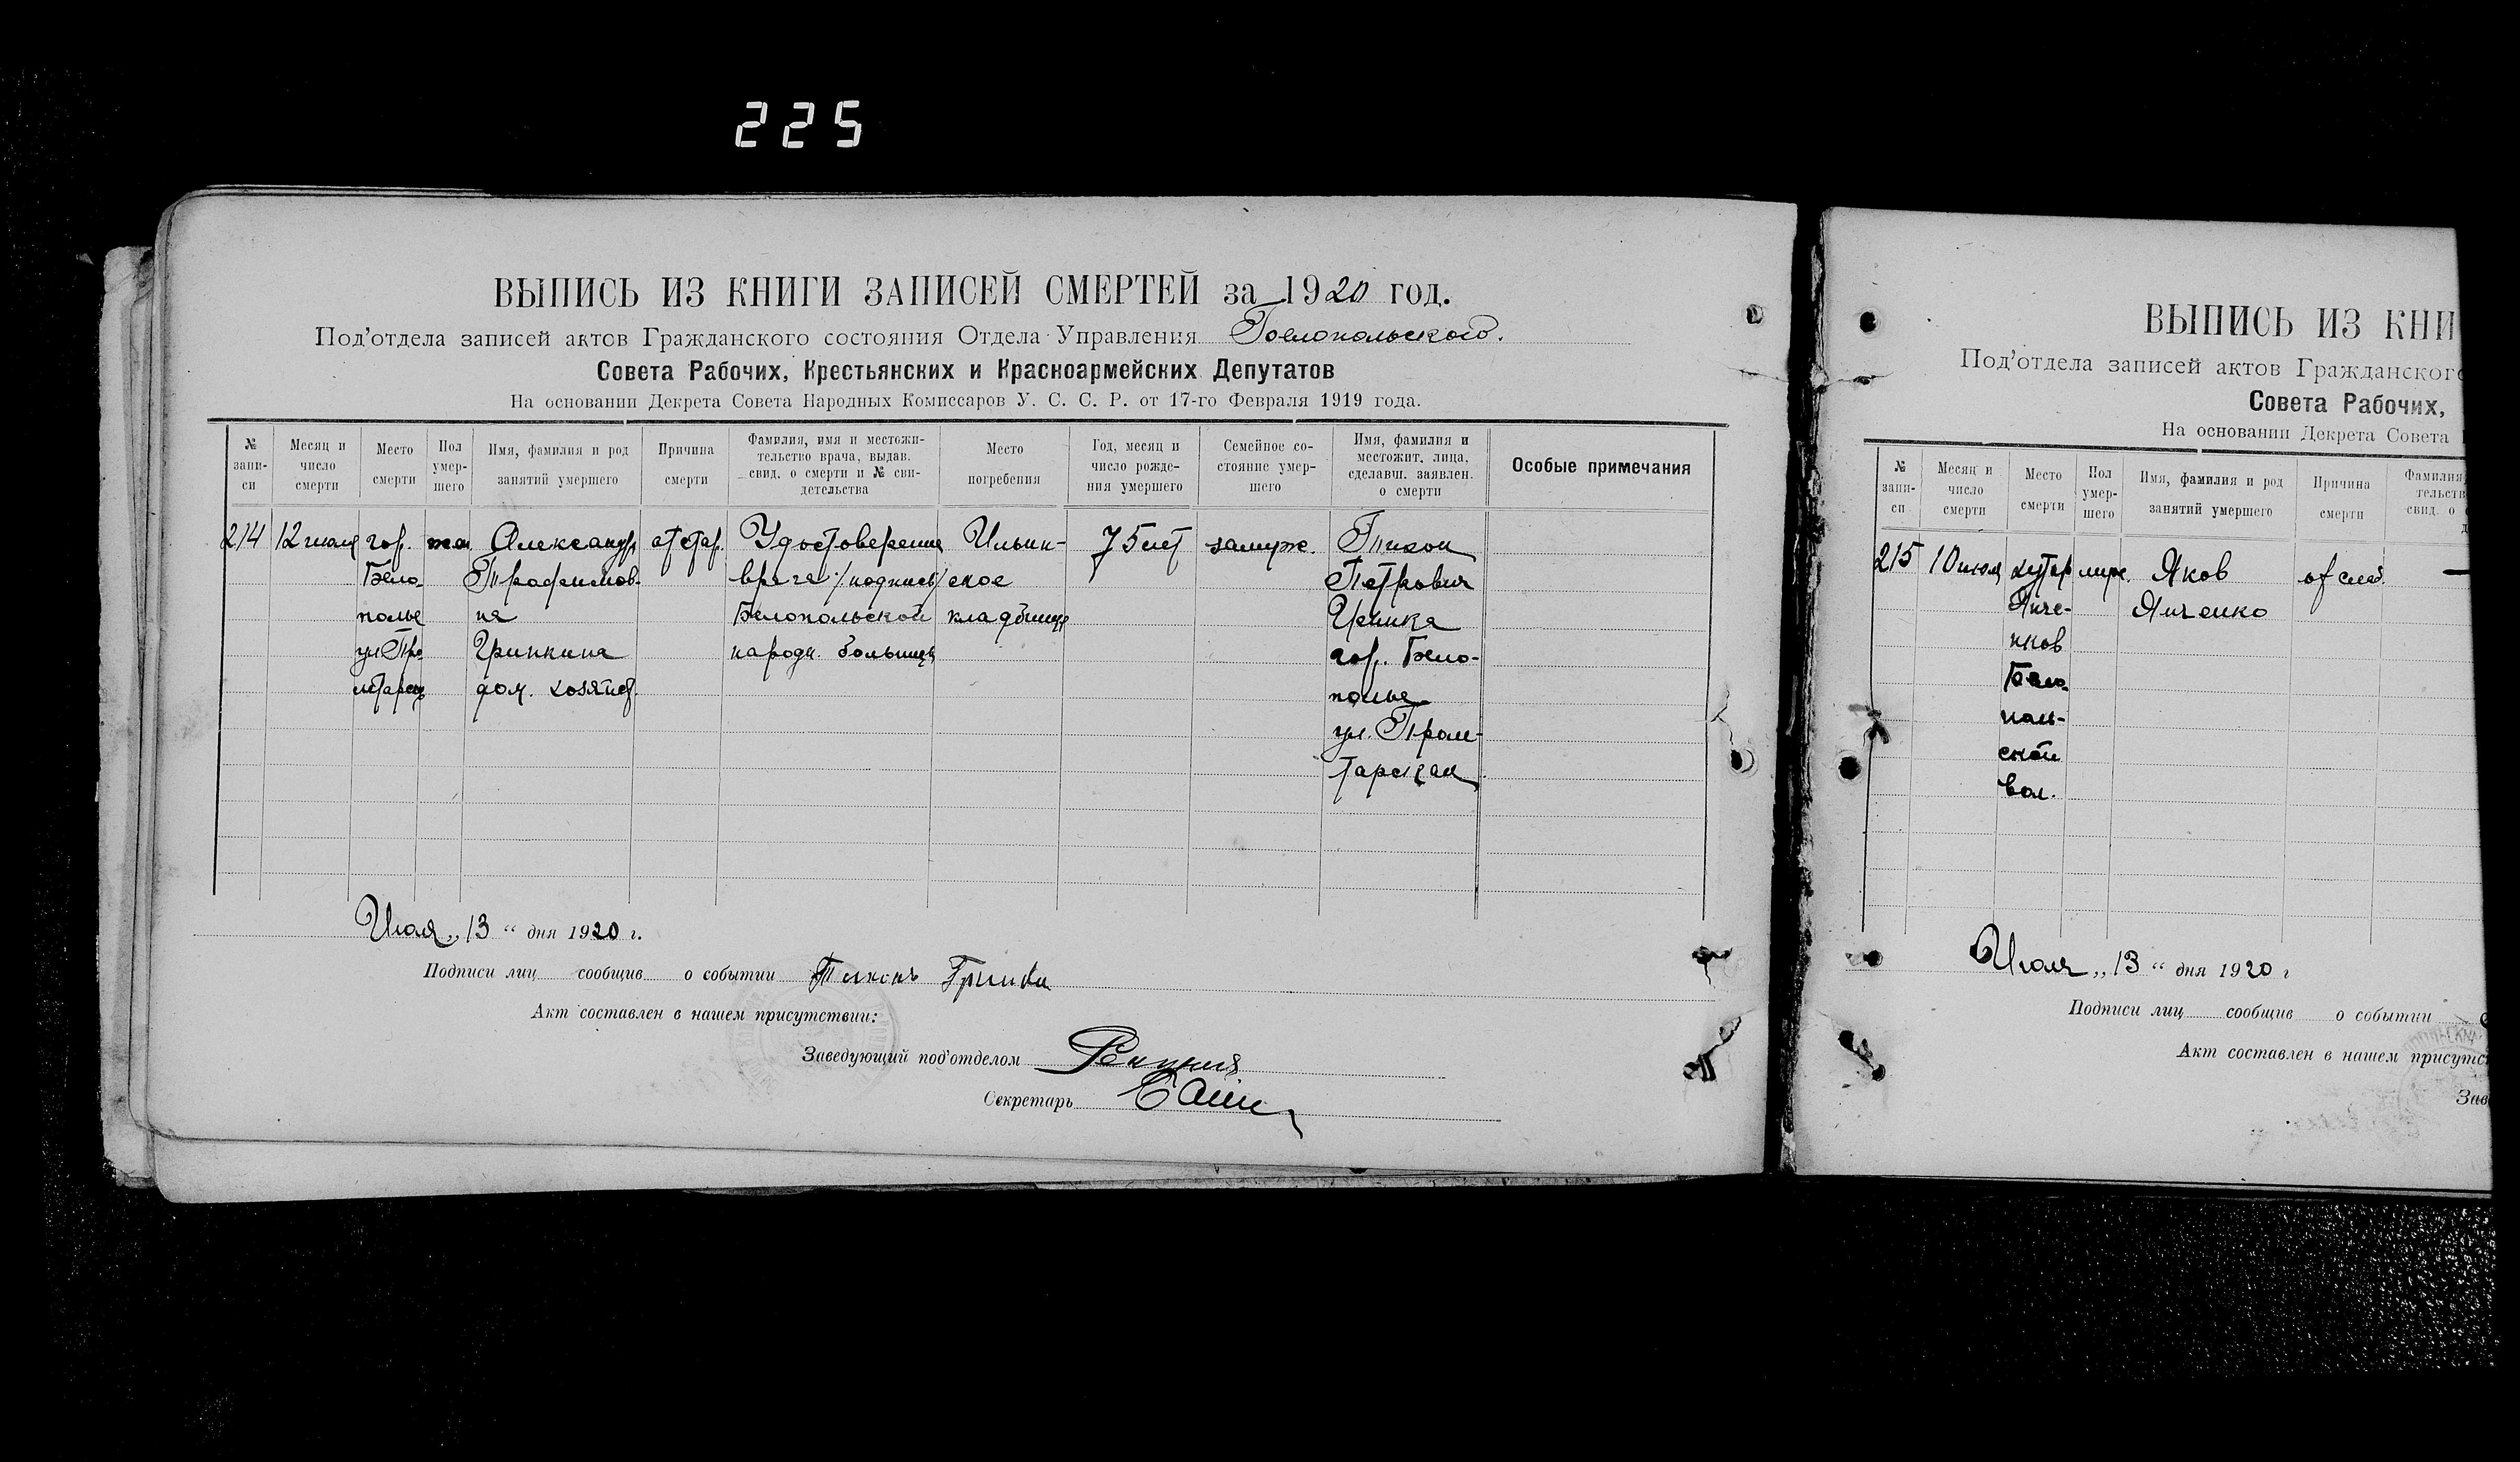 225
ВЫПИСЬ ИЗ КНИГИ ЗАПИСЕЙ СМЕРТЕЙ за 1920 год.
Под’отдела записей актов Гражданского состояния Отдела Управления Белопольского.
Совета Рабочих, Крестьянских и Красноармейских Депутатов
На основании Декрета Совета Народных Комиссаров У. С. С. Р. от 17-го Февраля 1919 года.
№ запи- си
Месяц и число смерти
Место смерти
Пол умер- шего
Имя, фамилия и род занятий умершего
Причина смерти
Фамилия, имя и местожи- тельство врача, выдав. свид. о смерти и № сви- детельства
Место погребения
Год, месяц и число рожде- ния умершего
Семейное со- стояние умер- шего
Имя, фамилия и местожит. лица, сделавш. заявлен. о смерти
Особые примечания
214
12 июля
гор.
Бело-
полье
ул. Про
летарск
жен.
Александр
Трофимов-
на
Гринкина
дом. хозяйст.
от стар.
Удостоверение
врача /подпись/
Белопольской
народн. больницы
Ильин-
ское
кладбище
75 лет
замуж.
Тихон
Петрович
гор. Бело-
полье
ул. Проле-
тарская
Июля „ 13 “ дня 1920 г.
Подписи лиц сообщив о событии Тихонъ
Акт составлен в нашем присутствии:
Заведующий под’отделом
Секретарь
ВЫПИСЬ ИЗ КНИ
Под’отдела записей актов Гражданского
Совета Рабочих,
На основании Декрета Совета
№ запи- си
Месяц и число смерти
Место смерти
Пол умер- шего
Имя, фамилия и род занятий умершего
Причина смерти
Фамилия тельств свид. о
215
10 июля
хутор
Яиче-
нков
Бело-
поль-
ской
вол.
муж.
Яков
Яиченко
от слаб.
—
Июля „ 13 “ дня 1920 г
Подписи лиц сообщив о событии
Акт составлен в нашем присутс
Зав